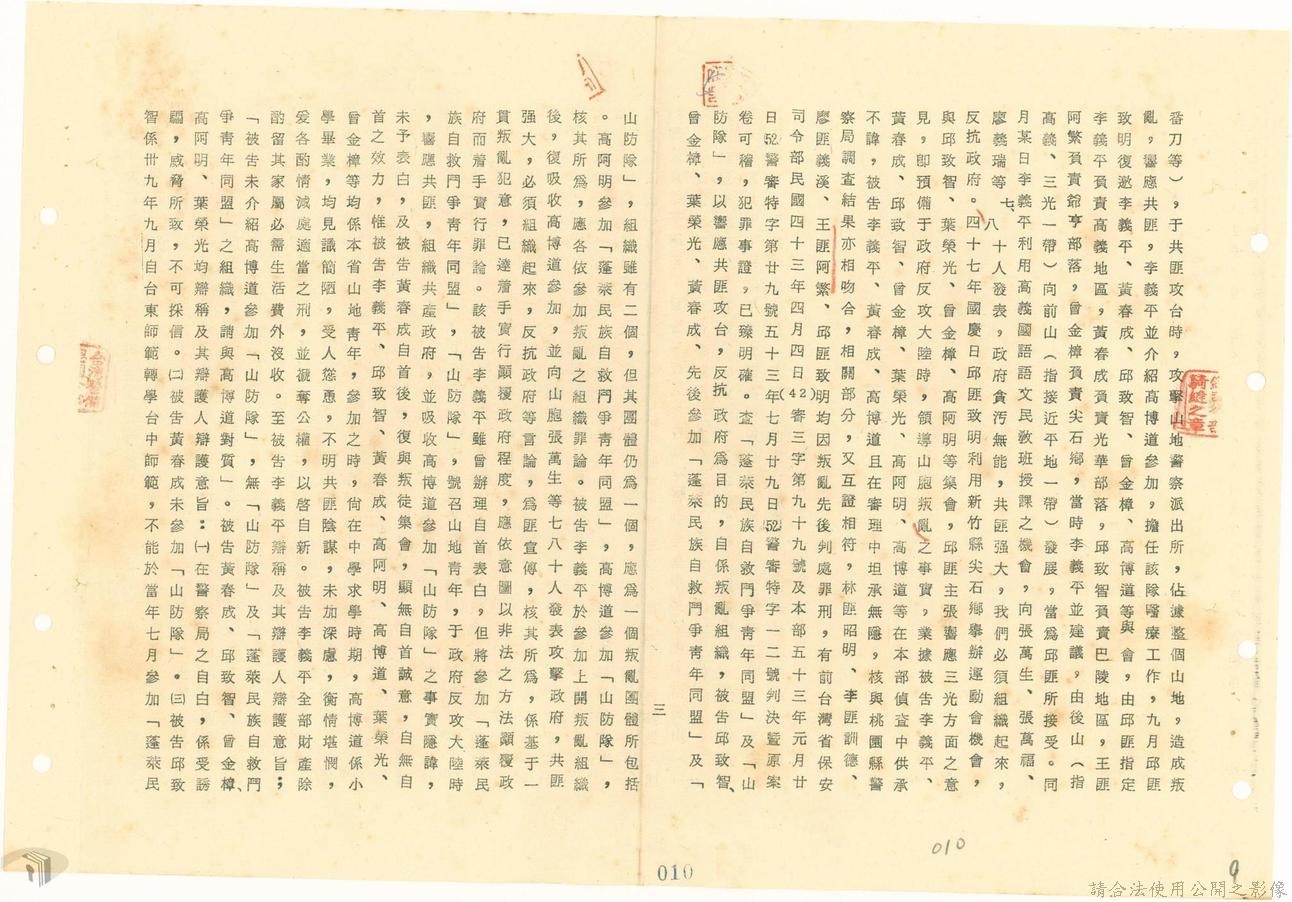 番刀等），于共匪攻台時，攻擊山地警察派出所，佔據整個山地，造成叛
亂，響應共匪，李義平並介紹高博道參加，擔任該隊醫療工作，九月邱匪
致明復邀李義平、黃春成、邱致智、曾金樟、高博道等與會，由邱匪指定
李義平負責高義地區，黃春成負責光華部落，邱致智負責巴陵地區，王匪
阿繁負責爺亨部落，曾金樟負責尖石鄉，當時李義平並建議，由後山（指
高義、三光一帶）向前山（指接近平地一帶）發展，當為邱匪所接受。同
月某日李義平利用高義國語語文民教班授課之機會，向張萬生、張萬福、
廖義瑞等七、八十人發表，政府貪汚無能，共匪强大，我們必須組織起來，
反抗政府。四十七年國慶日邱匪致明利用新竹縣尖石鄉舉辦運動會機會，
與邱致智、葉榮光、曾金樟、高阿明等集會，邱匪主張響應三光方面之意
見，卽預備于政府反攻大陸時，領導山胞叛亂之事實，業據被告李義平、
黃春成、邱致智、曾金樟、葉榮光、高阿明、高博道等在本部偵查中供承
不諱，被告李義平、黃春成、高博道且在審理中坦承無隱，核與桃園縣警
察局調查結果亦相吻合，相關部分，又互證相符，林匪昭明、李匪訓德、
廖匪義溪、王匪阿繁、邱匪致明均因叛亂先後判處罪刑，有前台灣省保安
司令部民國四十三年四月四日(42)審三字第九十九號及本部五十三年元月廿
日52警審特字第廿九號五十三年七月廿九日52警審特字一二號判決暨原案
卷可稽，犯罪事證，已臻明確。查「蓬萊民族自救鬥爭靑年同盟」及「山
防隊」，以響應共匪攻台，反抗政府為目的，自係叛亂組織，被告邱致智、
曾金樟、葉榮光、黃春成、先後參加「蓬萊民族自救鬥爭靑年同盟」及「
山防隊」，組織雖有二個，但其團體仍為一個，應為一個叛亂團體所包括
。高阿明參加「蓬萊民族自救鬥爭靑年同盟」，高博道參加「山防隊」，
核其所為，應各依參加叛亂之組織罪論。被告李義平於參加上開叛亂組織
後，復吸收高博道參加，並向山胞張萬生等七八十人發表攻擊政府，共匪
强大，必須組織起來，反抗政府等言論，為匪宣傳，核其所為，係基于一
貫叛亂犯意，已達着手實行顚覆政府程度，應依意圖以非法之方法顚覆政
府而着手實行罪論。該被告李義平雖曾辦理自首表白，但將參加「蓬萊民
族自救鬥爭靑年同盟」，「山防隊」，號召山地靑年，于政府反攻大陸時
，響應共匪，組織共產政府，並吸收高博道參加「山防隊」之事實隱諱，
未予表白，及被告黃春成自首後，復與叛徒集會，顯無自首誠意，自無自
首之效力，惟被告李義平、邱致智、黃春成、高阿明、高博道、葉榮光、
曾金樟等均係本省山地靑年，參加之時，尙在中學求學時期，高博道係小
學畢業，均見識簡陋，受人慫恿，不明共匪陰謀，未加深慮，衡情堪憫，
爰各酌情減處適當之刑，並褫奪公權，以啓自新。被告李義平全部財產除
酌留其家屬必需生活費外沒收。至被告李義平辯稱及其辯護人辯護意旨；
「被告未介紹高博道參加「山防隊」，無「山防隊」及「蓬萊民族自救鬥
爭靑年同盟」之組織，請與高博道對質」。被告黃春成、邱致智、曾金樟、
高阿明、葉榮光均辯稱及其辯護人辯護意旨：㈠在警察局之自白，係受誘
逼，威脅所致，不可採信。㈡被告黃春成未參加「山防隊」。㈢被告邱致
智係卅九年九月自台東師範轉學台中師範，不能於當年七月參加「蓬萊民
三
騎縫之章
010
010
9
請合法使用公開之影像